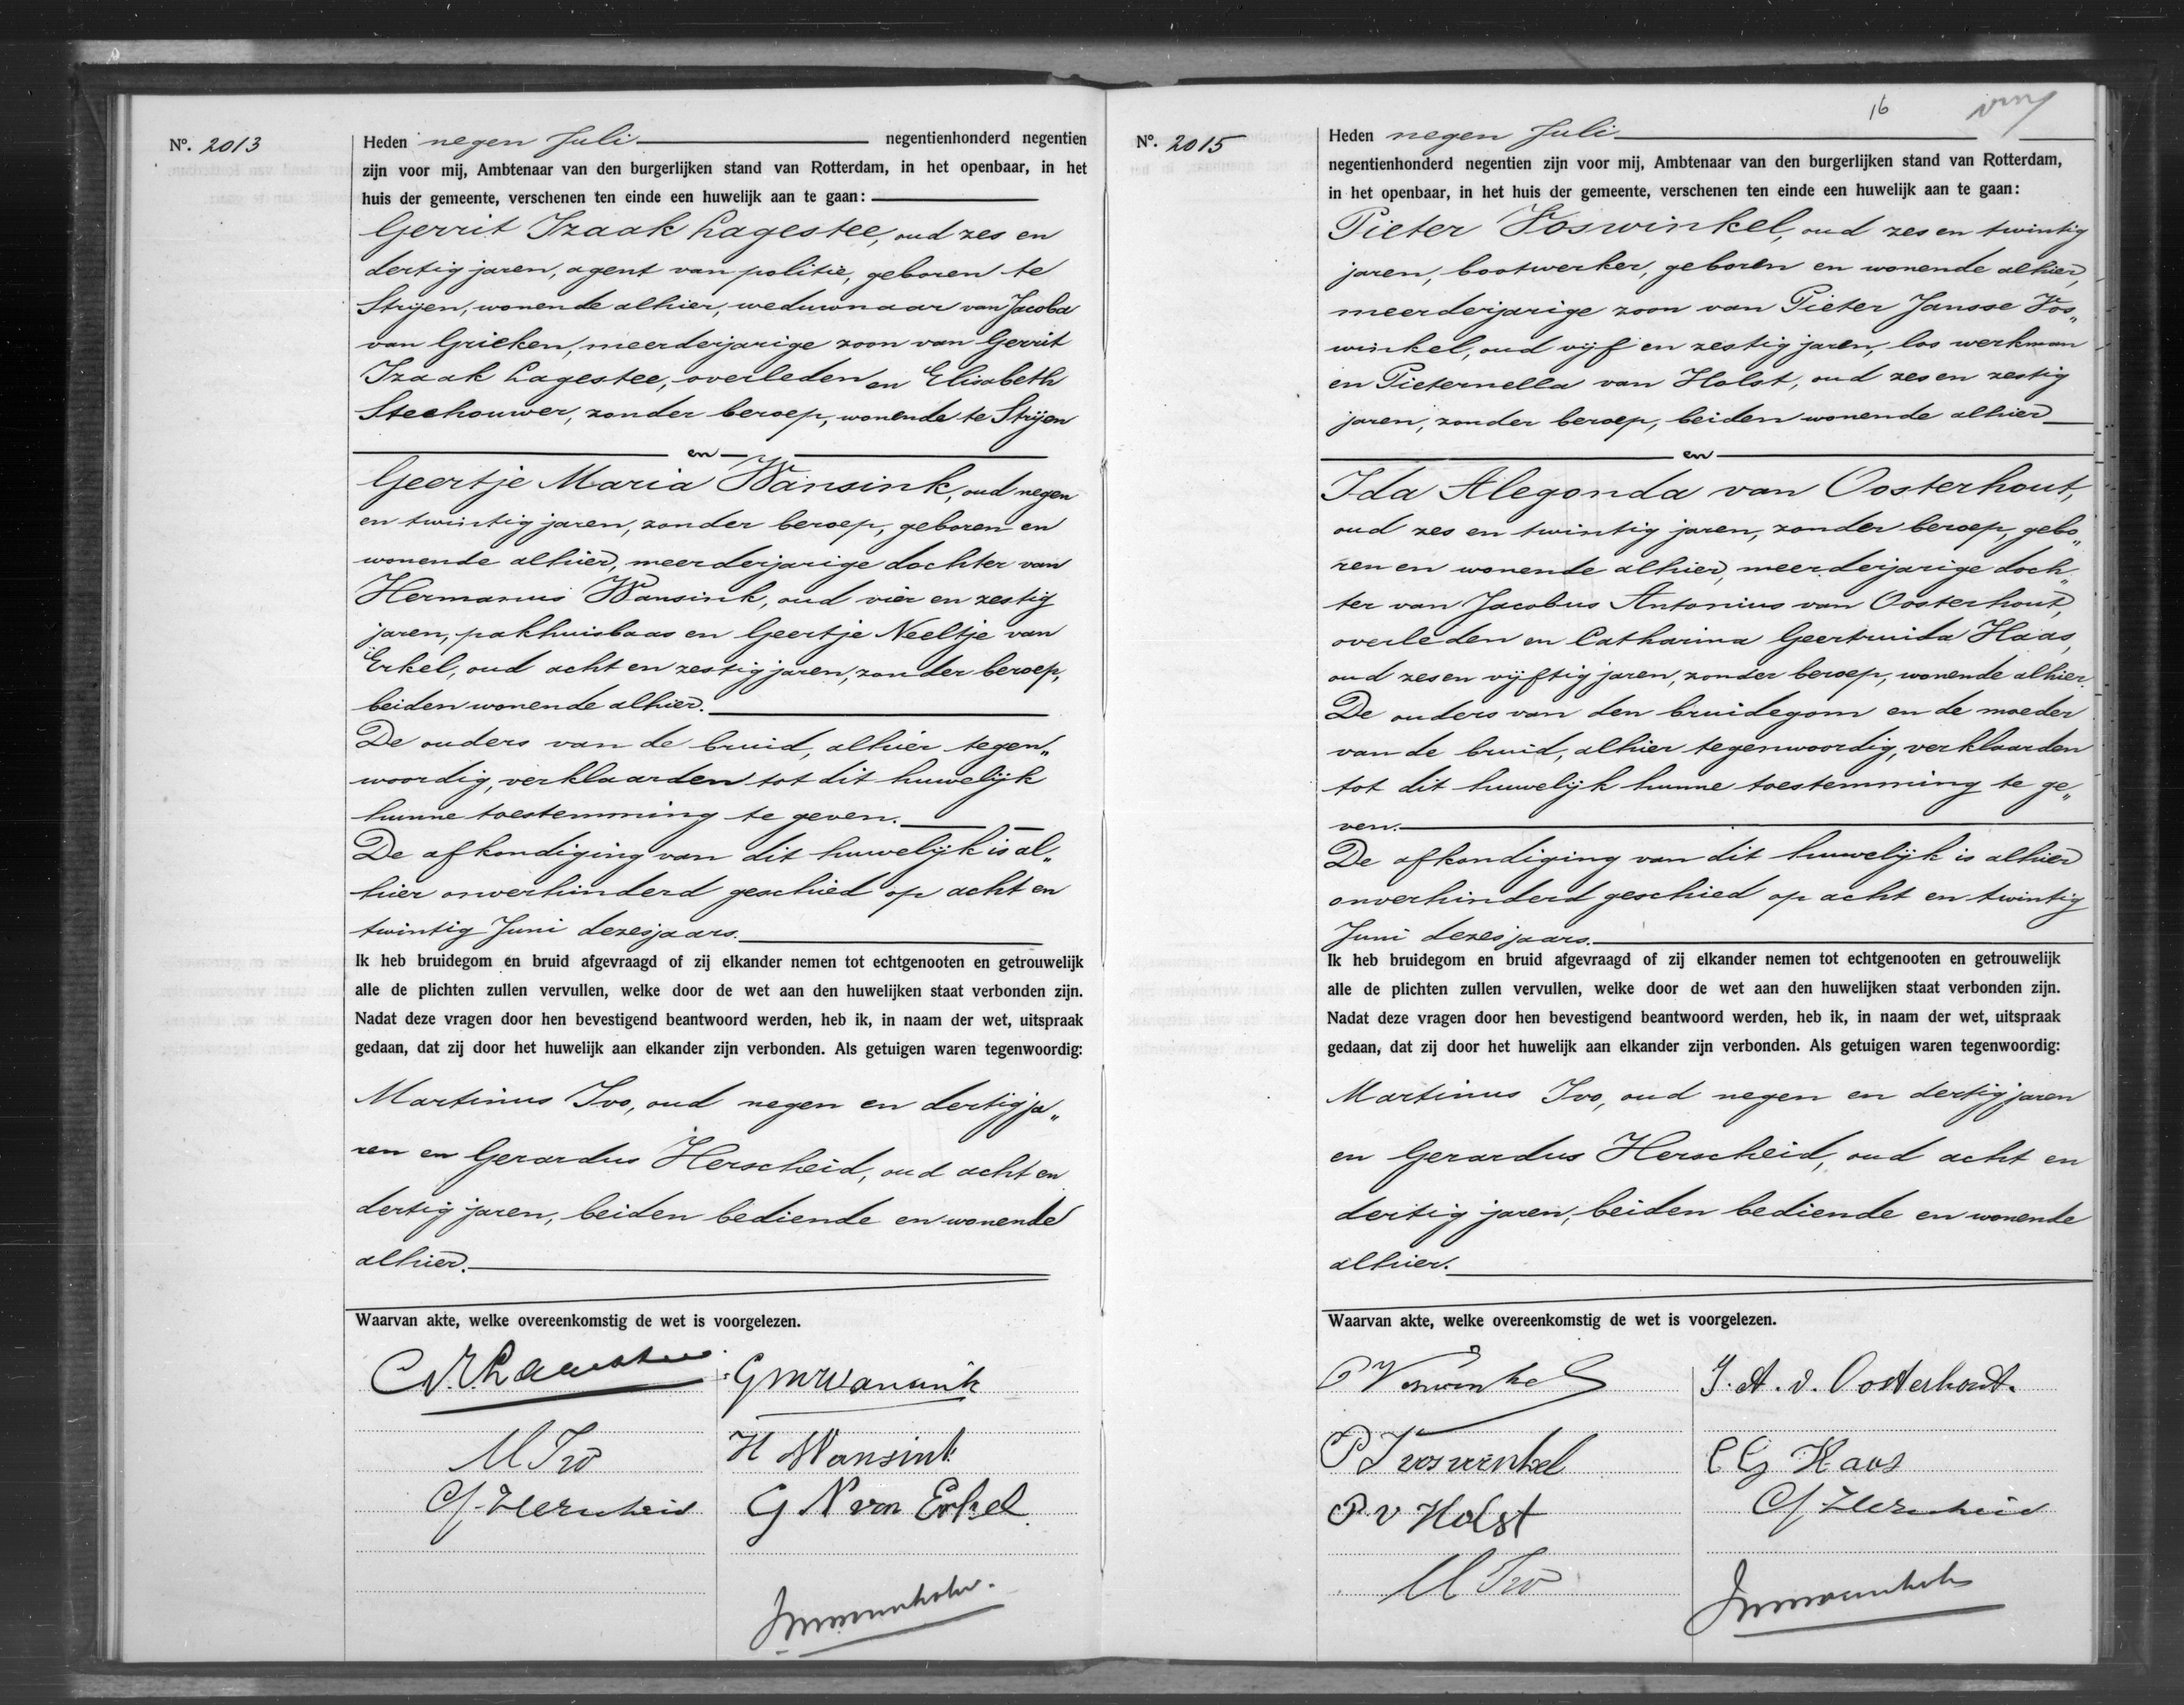 Nº. 2013
Heden negen Juli negentienhonderd negentien
zijn voor mij, Ambtenaar van den burgerlijken stand van Rotterdam, in het openbaar, in het
huis der gemeente, verschenen ten einde een huwelijk aan te gaan:
Gerrit Izaak Lagestee, oud zes en
dertig jaren, agent van politie, geboren te
Strijen, wonende alhier, weduwnaar van Jacoba
van Grieken, meerderjarige zoon van Gerrit
Izaak Lagestee, overleden en Elisabeth
Steehouwer, zonder beroep, wonende te Strijen
en
Geertje Maria Wansink, oud negen
en twintig jaren, zonder beroep, geboren en
wonende alhier, meerderjarige dochter van
Hermanus Wansink, oud vier en zestig
jaren, pakhuisbaas en Geertje Neeltje van
Erkel, oud acht en zestig jaren, zonder beroep,
beiden wonende alhier.
De ouders van de bruid, alhier tegen„
woordig, verklaarden tot dit huwelijk
hunne toestemming te geven.
De afkondiging van dit huwelijk is al„
hier onverhinderd geschied op acht en
twintig Juni dezesjaars.
Ik heb bruidegom en bruid afgevraagd of zij elkander nemen tot echtgenooten en getrouwelijk
alle de plichten zullen vervullen, welke door de wet aan den huwelijken staat verbonden zijn.
Nadat deze vragen door hen bevestigend beantwoord werden, heb ik, in naam der wet, uitspraak
gedaan, dat zij door het huwelijk aan elkander zijn verbonden. Als getuigen waren tegenwoordig:
Martinus Ivo, oud negen en dertig ja„
ren en Gerardus Herscheid, oud acht en
dertig jaren, beiden bediende en wonende
alhier.
Waarvan akte, welke overeenkomstig de wet is voorgelezen.
GMWansink
M Ivo
H Wansink
G Herscheid
G N van Erkel
16
Nº. 2015
Heden negen Juli
negentienhonderd negentien zijn voor mij, Ambtenaar van den burgerlijken stand van Rotterdam,
in het openbaar, in het huis der gemeente, verschenen ten einde een huwelijk aan te gaan:
Pieter Voswinkel, oud zes en twintig
jaren, bootwerker, geboren en wonende alhier,
meerderjarige zoon van Pieter Jansse Vos„
winkel, oud vijf en zestig jaren, los werkman
en Pieternella van Holst, oud zes en zestig
jaren, zonder beroep, beiden wonende alhier
en
Ida Alegonda van Oosterhout,
oud zes en twintig jaren, zonder beroep, gebo„
ren en wonende alhier, meerderjarige doch„
ter van Jacobus Antonius van Oosterhout,
overleden en Catharina Geertruida Haas,
oud zes en vijftig jaren, zonder beroep, wonende alhier.
De ouders van den bruidegom en de moeder
van de bruid, alhier tegenwoordig, verklaarden
tot dit huwelijk hunne toestemming te ge„
ven.
De afkondiging van dit huwelijk is alhier
onverhinderd geschied op acht en twintig
Juni dezesjaars.
Ik heb bruidegom en bruid afgevraagd of zij elkander nemen tot echtgenooten en getrouwelijk
alle de plichten zullen vervullen, welke door de wet aan den huwelijken staat verbonden zijn.
Nadat deze vragen door hen bevestigend beantwoord werden, heb ik, in naam der wet, uitspraak
gedaan, dat zij door het huwelijk aan elkander zijn verbonden. Als getuigen waren tegenwoordig:
Martinus Ivo, oud negen en dertig jaren
en Gerardus Herscheid, oud acht en
dertig jaren, beiden bediende en wonende
alhier.
Waarvan akte, welke overeenkomstig de wet is voorgelezen.
P Voswinkel
I. A. v. Oosterhout.
P J voswinkel
C G Haas
P v Holst
G Herscheid
M Ivo